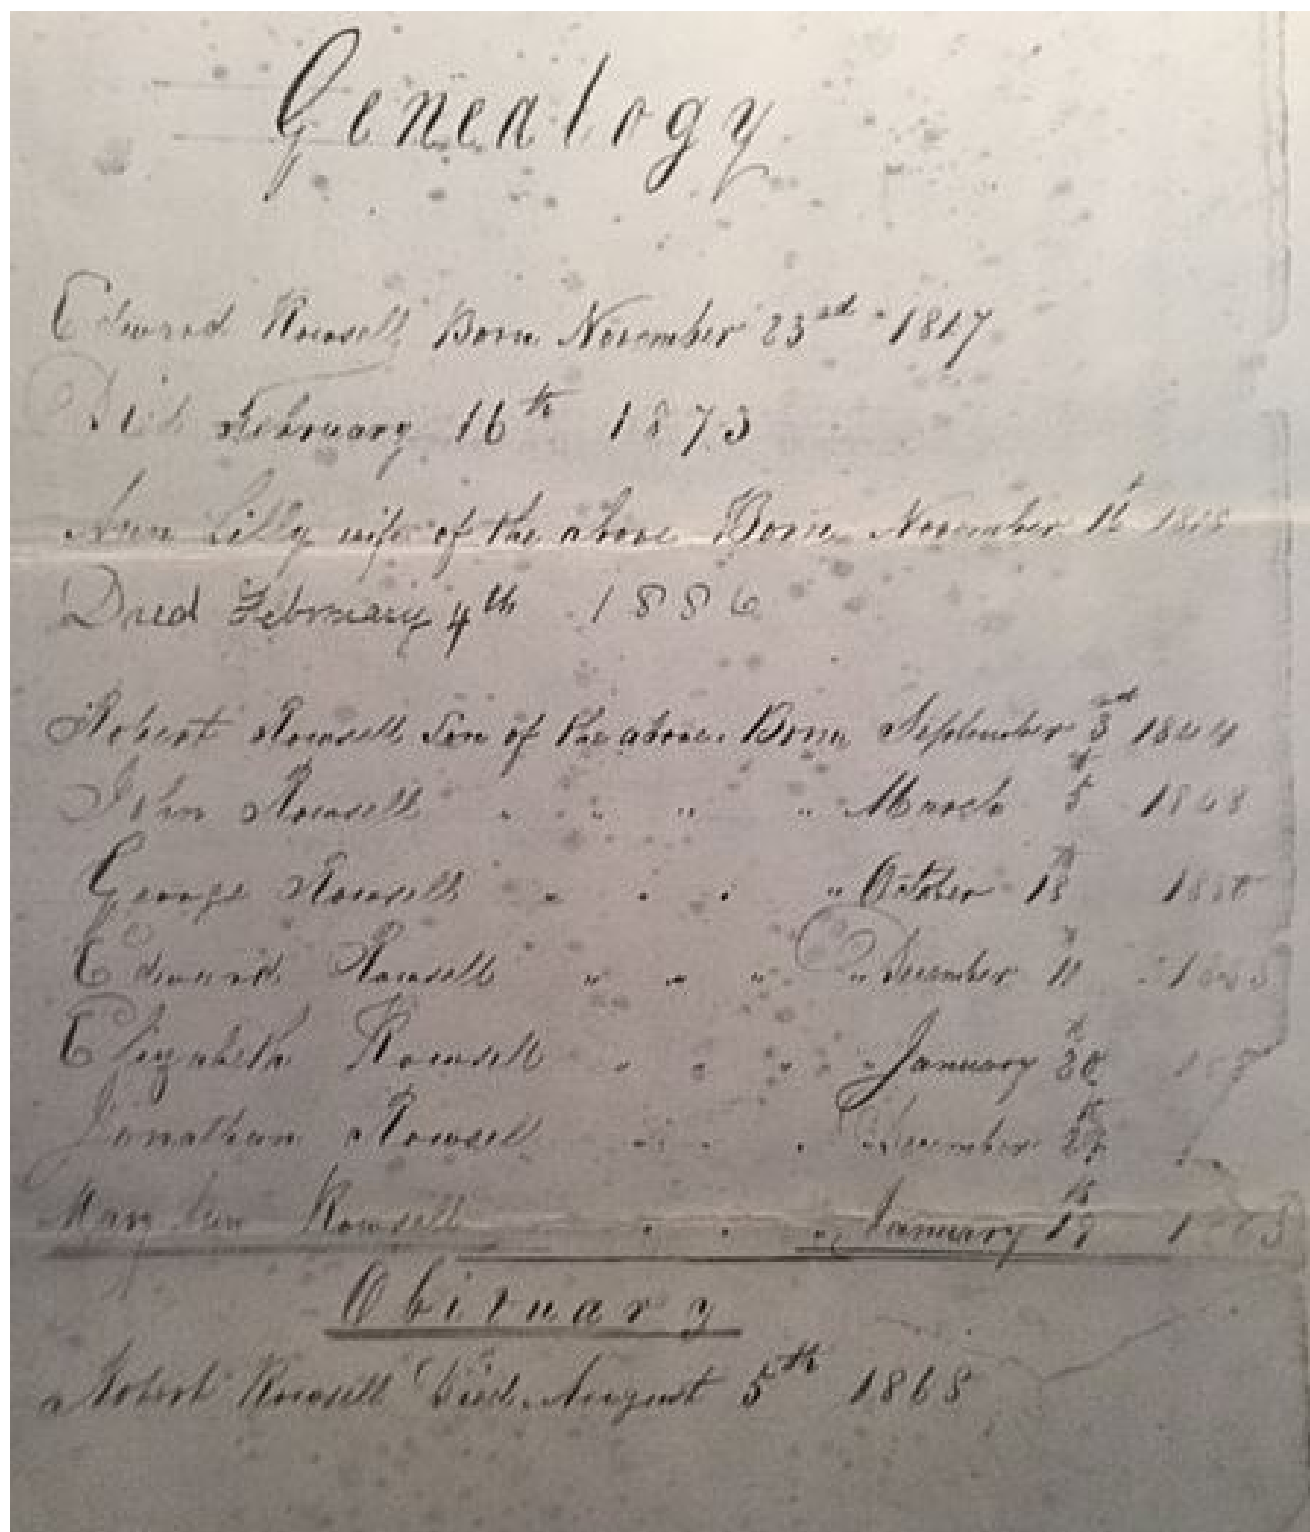 Genealogy
Edward Rowsell Born November 23rd 1817
Died February 16th 1873
Ann Lilly wife of the above Born November 1818
Died February 4th 1886
Robert Rowsell Son of the above. Born September 3rd 1844
John Rowsell " " " " March 5th 1848
George Rowsell " " " " October 18th 1850
Edward Rowsell " " " " December 11th
Elizabeth Rowsell " " " " January 30th
Jonathan Rowsell " " " " December 27th
Mary Ann Rowsell " " " January 19th
Obituary
Robert Rowsell Died August 5th 1868